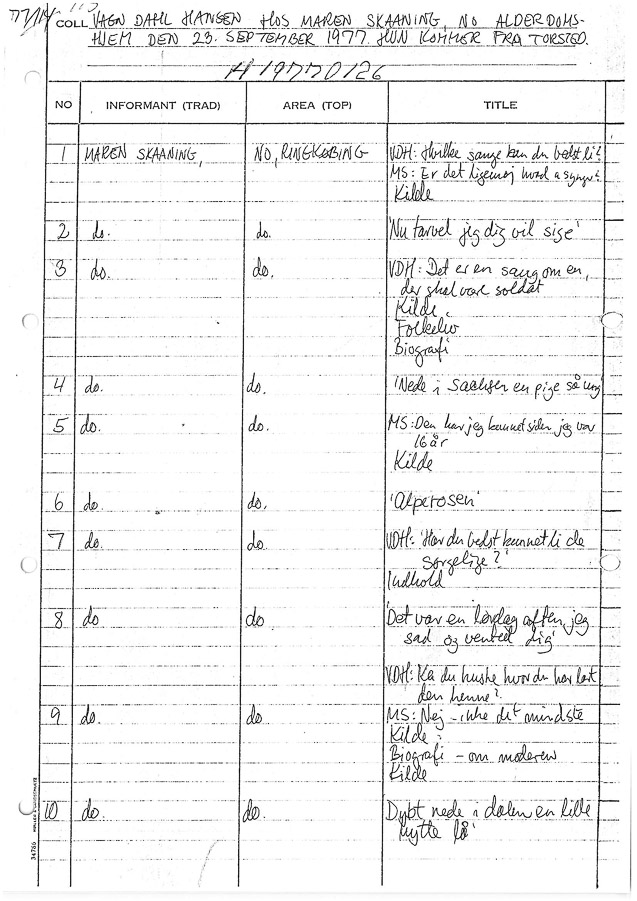 77/14
COLL VAGN DAHL HANSEN HOS MAREN SKAANING, NO ALDERDOMS-
HJEM DEN 23. SEPTEMBER 1977. HUN KOMMER FRA TORSTED.
H 1977 0126
NO INFORMANT (TRAD) AREA (TOP) TITLE
1 MAREN SKAANING, NO, RINGKØBING VDH: Hvilke sange kan du bedst li?
MS: Er det ligemøj hvad a synger?
Kilde
2 do. do. 'Nu farvel jeg dig vil sige'
3 do. do. VDH: Det er en sang om en,
der skal være soldat
Kilde
Folkeliv
Biografi
4 do. do. 'Nede i Sachsen en pige så ung
5 do. do. MS: Den har jeg kunnet siden jeg var
16 år
Kilde
6 do. do. 'Alperosen'
7 do. do. VDH: 'Har du bedst kunnet li de
sørgelige?'
Indhold
8 do do 'Det var en lørdag aften, jeg
sad og ventede dig'
VDH: Ka du huske hvor du har lært
den henne?
9 do. do MS: Nej - ikke det mindste
Kilde
Biografi - om moderen
Kilde
10 do. do. Dybt nede i dalen en lille
hytte lå'
34766